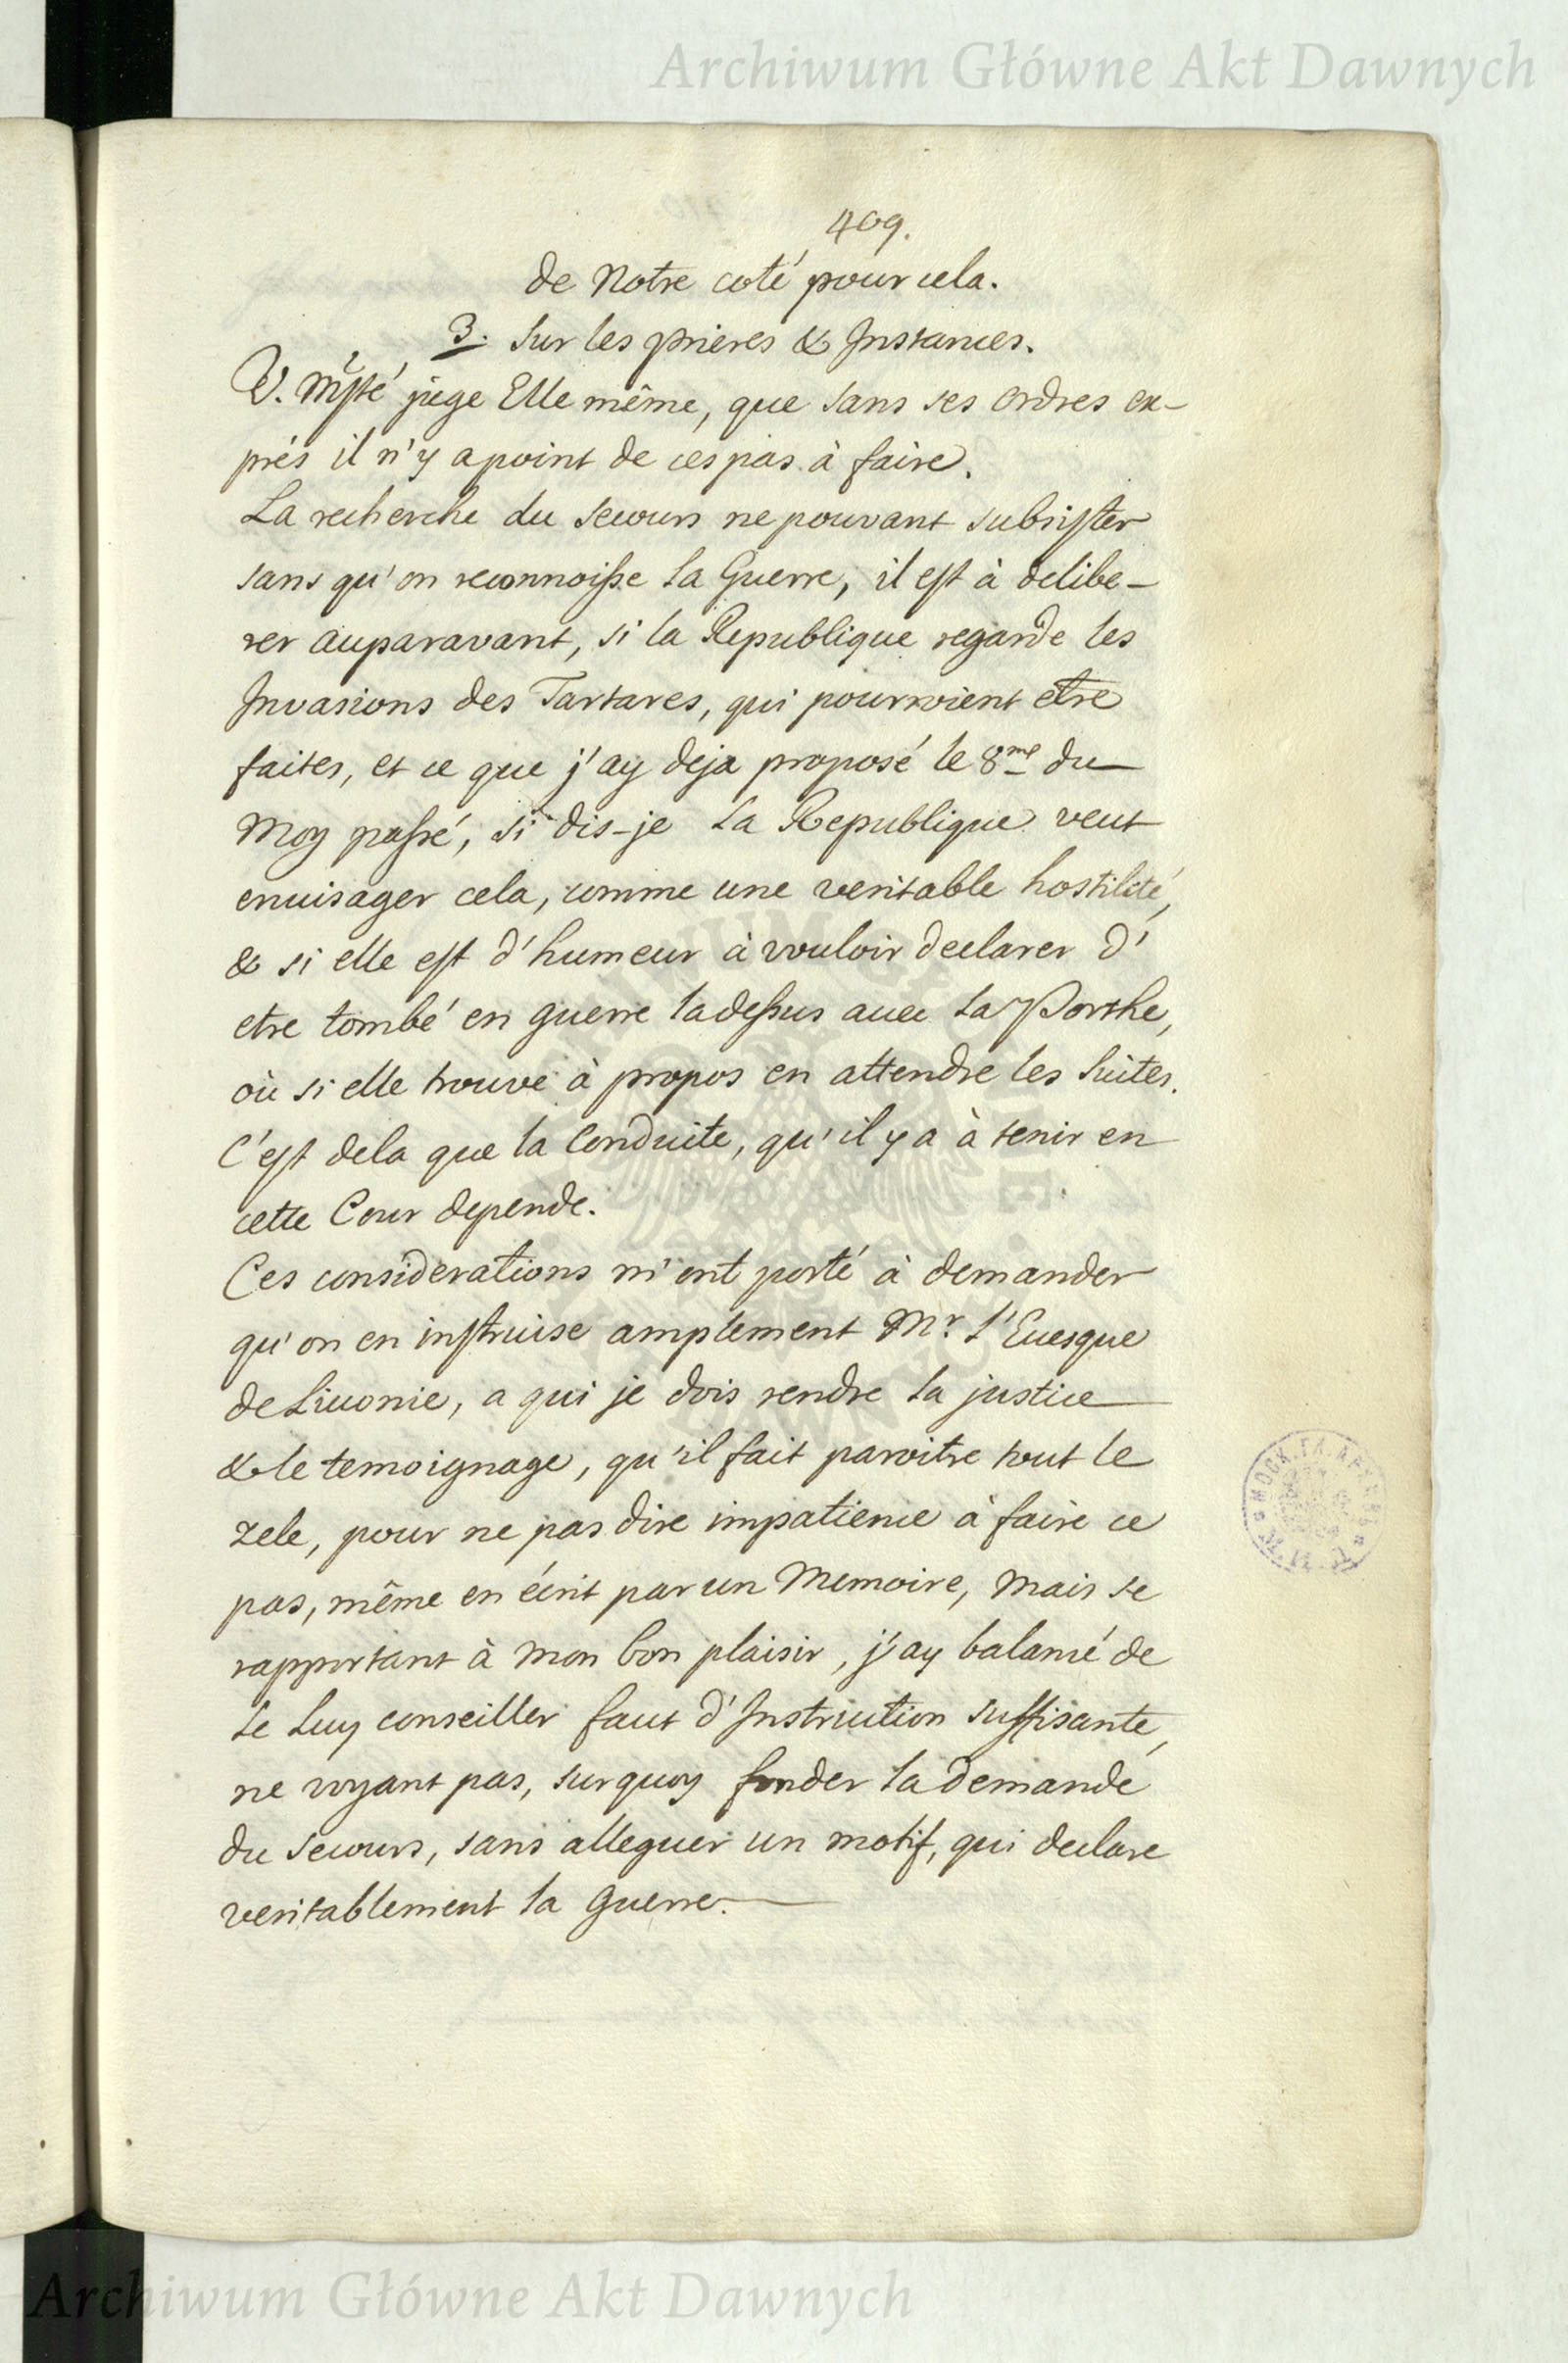 Archiwum Główne Akt Dawnych
409.
de Notre coté pour cela.
3. Sur les prieres & Instances.
V. Mté juge Elle même, que sans ses ordres ex-
prés il n'y a point de ces pas à faire.
La recherche du secours ne pouvant subsister
sans qu'on reconnoisse la Guerre, il est à delibe-
rer auparavant, si la Republique regarde les
Invasions des Tartares, qui pourroient etre
faites, et ce que j'ay deja proposé le 8me du
Moy passé, si dis-je la Republique veut
enuisager cela, comme une veritable hostilité,
& si elle est d'humeur à vouloir declarer d'
etre tombé en guerre ladessus auec la Porthe,
où si elle trouve à propos en attendre les suites.
C'est dela que la Conduite, qu'il y a à tenir en
cette Cour depende.
Ces considerations m'ont porté à demander
qu'on en instruise amplement Mr. l'Euesque
de Liuonie, a qui je dois rendre la justice
& le temoignage, qu'il fait paroitre tout le
zele, pour ne pas dire impatience à faire ce
pas, même en écrit par un Memoire, mais se
rapportant à mon bon plaisir, j'ay balancé de
le luy conseiller faut d'Instruction suffisante,
ne voyant pas, sur quoy fonder la demande
du secours, sans alleguer un motif, qui declare
veritablement la Guerre.
Archiwum Główne Akt Dawnych